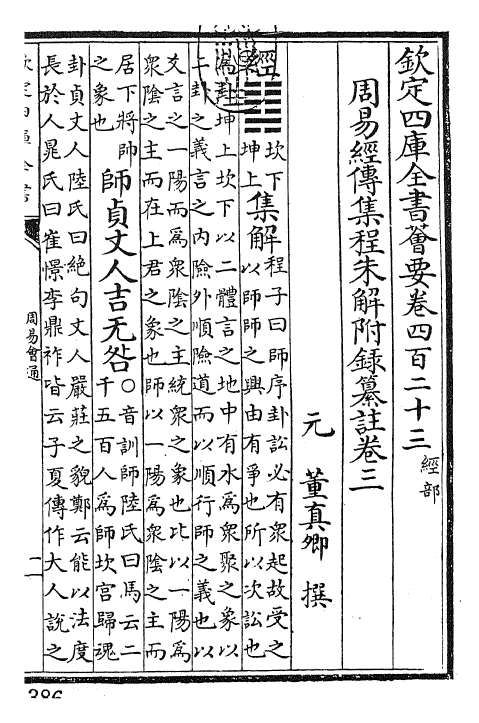 欽定四庫全書薈要卷四百二十三 經部
周易經傳集程朱解附録纂註卷三
元 董真卿 撰
經 ䷆ 坎下坤上 集解 程子曰師序卦訟必有衆起故受之
以師師之興由有爭也所以次訟也
爲卦坤上坎下以二體言之地中有水爲衆聚之象以
二卦之義言之内險外順險道而以順行師之義也以
爻言之一陽而爲衆陰之主統衆之象也比以一陽爲
衆陰之主而在上君之象也師以一陽爲衆陰之主而
居下將帥之象也 師貞丈人吉无咎 ○音訓師陸氏曰馬云二
千五百人爲師坎宫歸魂
卦貞丈人陸氏曰絶句丈人嚴莊之貌鄭云能以法度
長於人晁氏曰崔憬李鼎祚皆云子夏傳作大人說之
欽定四庫全書
周易會通
二
386